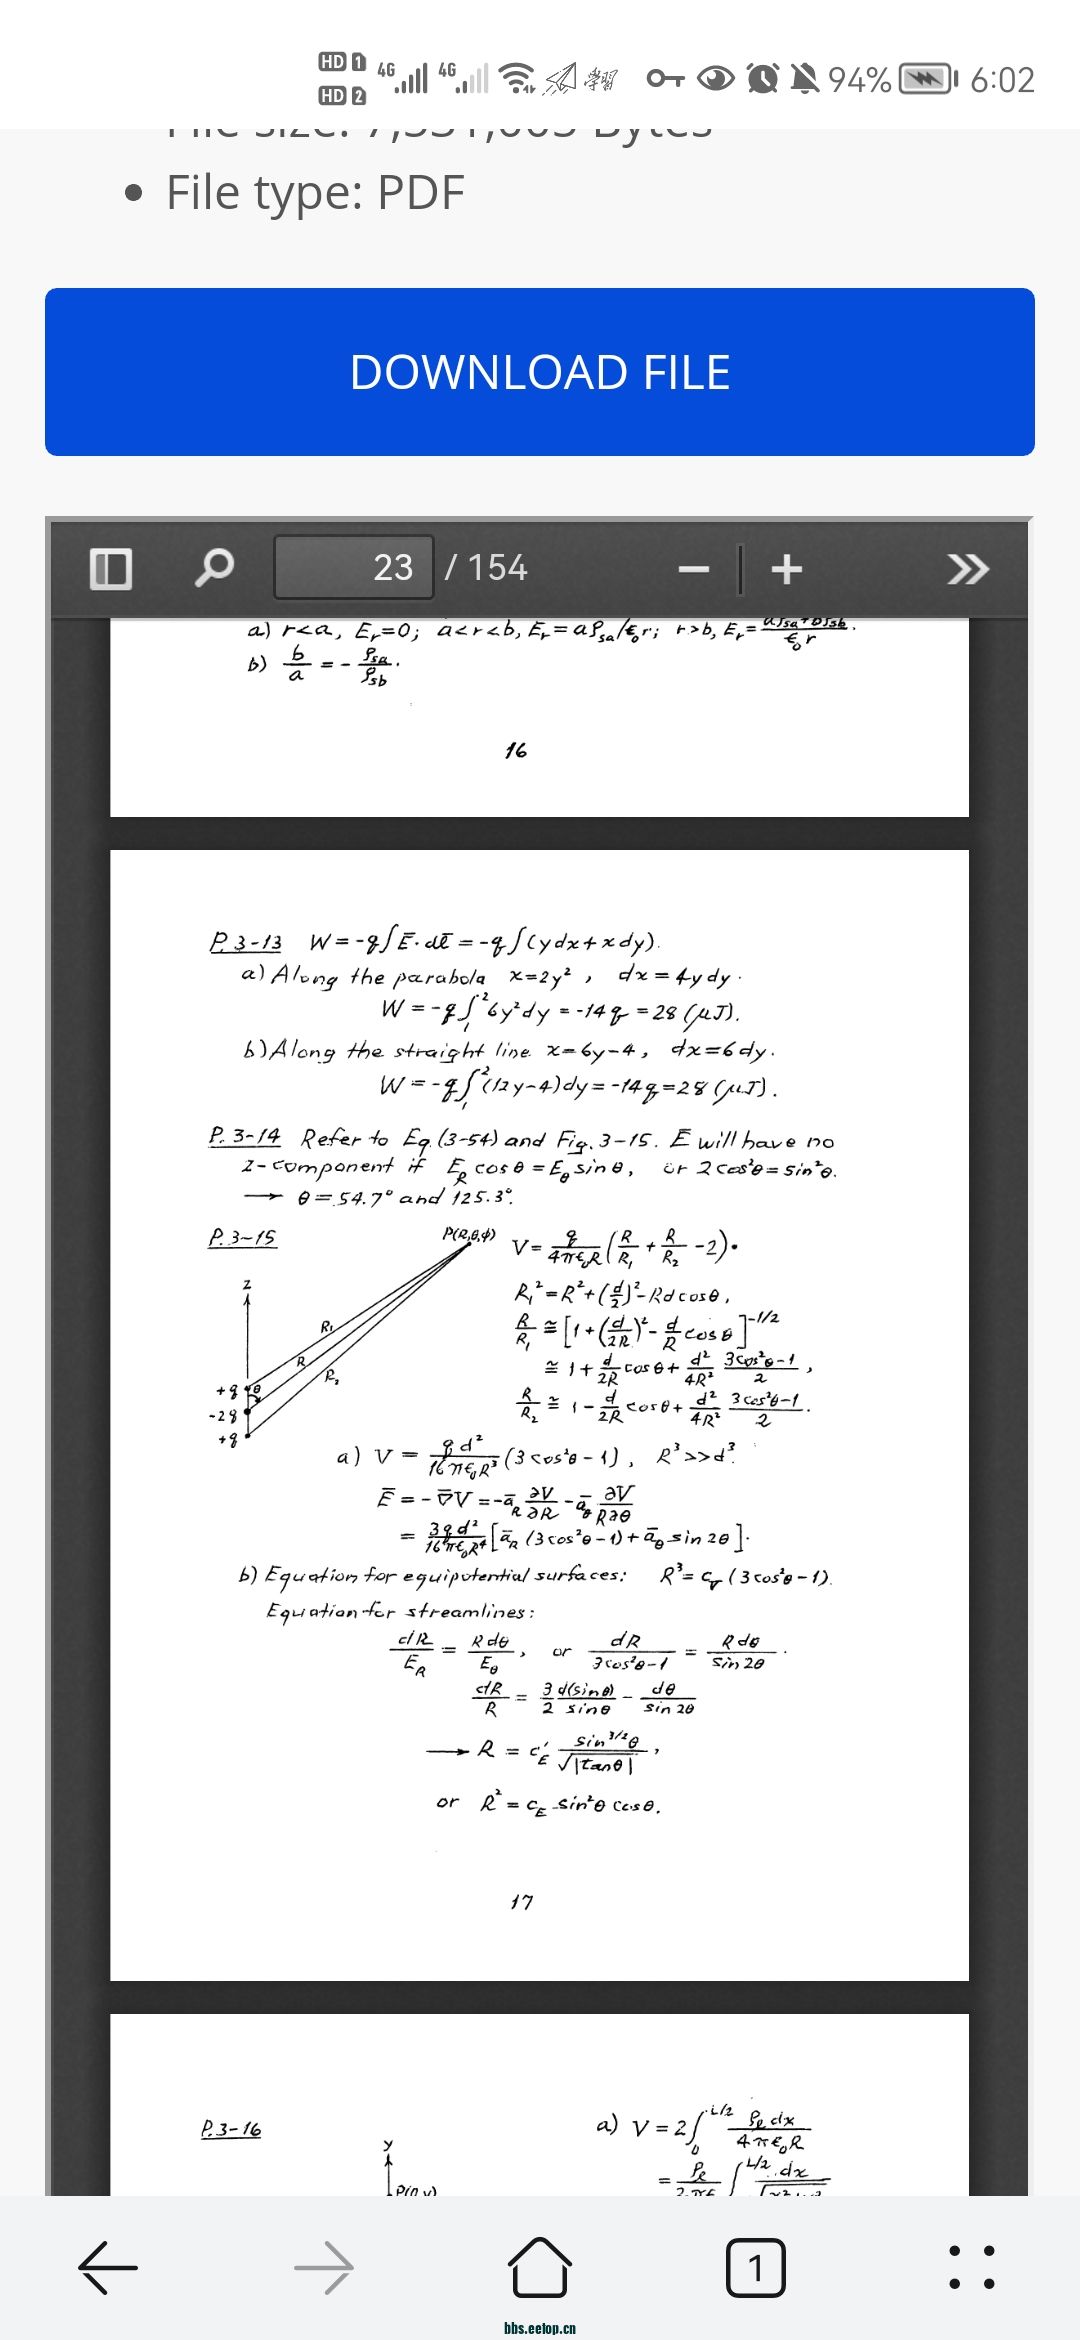 HD 1
HD 2
4G 4G 学習 94% 6:02
File size: 7,331,005 Bytes
• File type: PDF
DOWNLOAD FILE
23 / 154
a) r<a, E_r=0; a<r<b, E_r=aρ_sa/ε₀r; r>b, E_r= (aρ_sa+bρ_sb)/(ε₀r).
b) b/a = - ρ_sa/ρ_sb.
16
P. 3-13 W = -q∫Ē·dl̄ = -q∫(ydx+xdy).
a) Along the parabola x=2y², dx=4ydy.
W = -q∫₁² 6y²dy = -14q = 28 (μJ).
b) Along the straight line x=6y-4, dx=6dy.
W = -q∫₁²(12y-4)dy = -14q = 28 (μJ).
P. 3-14 Refer to Eq. (3-54) and Fig. 3-15. Ē will have no
z-component if E_R cosθ = E_θ sinθ, or 2cos²θ = sin²θ.
⟶ θ = 54.7° and 125.3°.
P. 3-15 P(R,θ,φ) V = q/(4πε₀R) (R/R₁ + R/R₂ -2).
z
R₁² = R²+(d/2)²-Rd cosθ,
R₁
R/R₁ ≅ [1+(d/2R)²- d/R cosθ]^(-1/2)
R
≅ 1+ d/2R cosθ + d²/4R² (3cos²θ-1)/2,
R₂
+q θ
R/R₂ ≅ 1- d/2R cosθ + d²/4R² (3cos²θ-1)/2.
-2q
+q
a) V = qd²/(16πε₀R³) (3cos²θ-1), R³>>d³.
Ē = -∇̄V = -ā_R ∂V/∂R - ā_θ ∂V/R∂θ
= 3qd²/(16πε₀R⁴) [ā_R (3cos²θ-1)+ā_θ sin2θ].
b) Equation for equipotential surfaces: R³ = c_V (3cos²θ-1).
Equation for streamlines:
dR/E_R = Rdθ/E_θ, or dR/(3cos²θ-1) = Rdθ/sin2θ.
dR/R = 3/2 d(sinθ)/sinθ - dθ/sin2θ
⟶ R = c'_E sin^(3/2)θ/√|tanθ|,
or R² = c_E sin²θ cosθ.
17
P. 3-16 a) V = 2∫₀^(L/2) ρ_ℓdx/(4πε₀R)
y
P(0,y)
1
bbs.eetop.cn